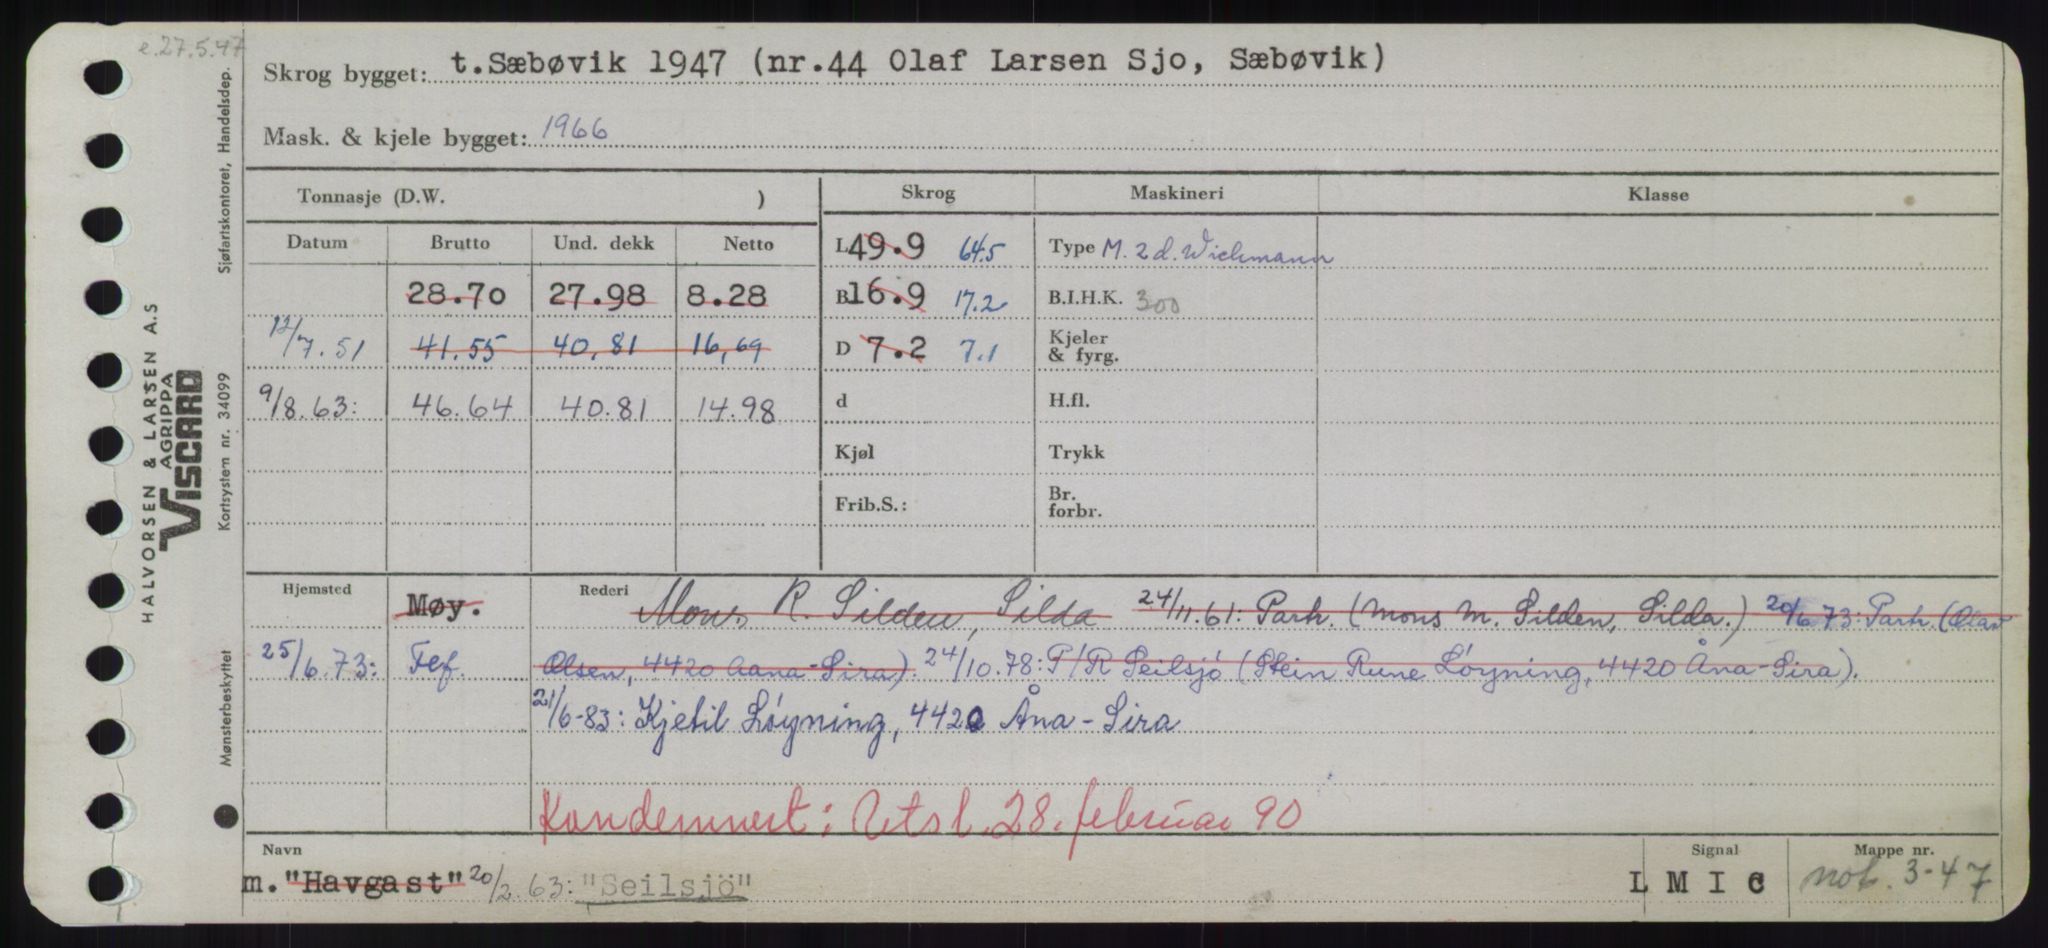 e.27.5.47
Skrog bygget: t.Sæbøvik 1947 (nr.44 Olaf Larsen Sjo, Sæbøvik)
Mask. & kjele bygget: 1966
Tonnasje (D.W. )
Skrog
Maskineri
Klasse
Datum Brutto Und. dekk Netto
L 49.9 64.5
Type M. 2 d. Wichmann
28.70 27.98 8.28
B 16.9 17.2
B.I.H.K. 300
12/7.51 41.55 40,81 16,69
D 7.2 7.1
Kjeler
& fyrg.
9/8.63: 46.64 40.81 14.98
d
H.fl.
Kjøl
Trykk
Frib.S.:
Br.
forbr.
Hjemsted Møy.
Rederi Mons R. Silden, Silda 24/11.61: Parh. (Mons M. Silden, Silda.) 20/6 73: Parh. (Olav
25/6.73: Fef. Olsen, 4420 Aana-Sira). 24/10.78: P/R Seilsjö (Stein Rune Løyning, 4420 Åna-Sira).
21/6-83: Kjetil Løyning, 4420 Åna-Sira
Kondemnert: Utsl. 28. februar 90
Navn Signal Mappe nr.
m. "Havgast" 20/2.63: "Seilsjö" L M I C not. 3-47
HALVORSEN & LARSEN A.S
AGRIPPA
VISCARD
Mønsterbeskyttet Kortsystem nr. 34099 Sjøfartskontoret, Handelsdep.